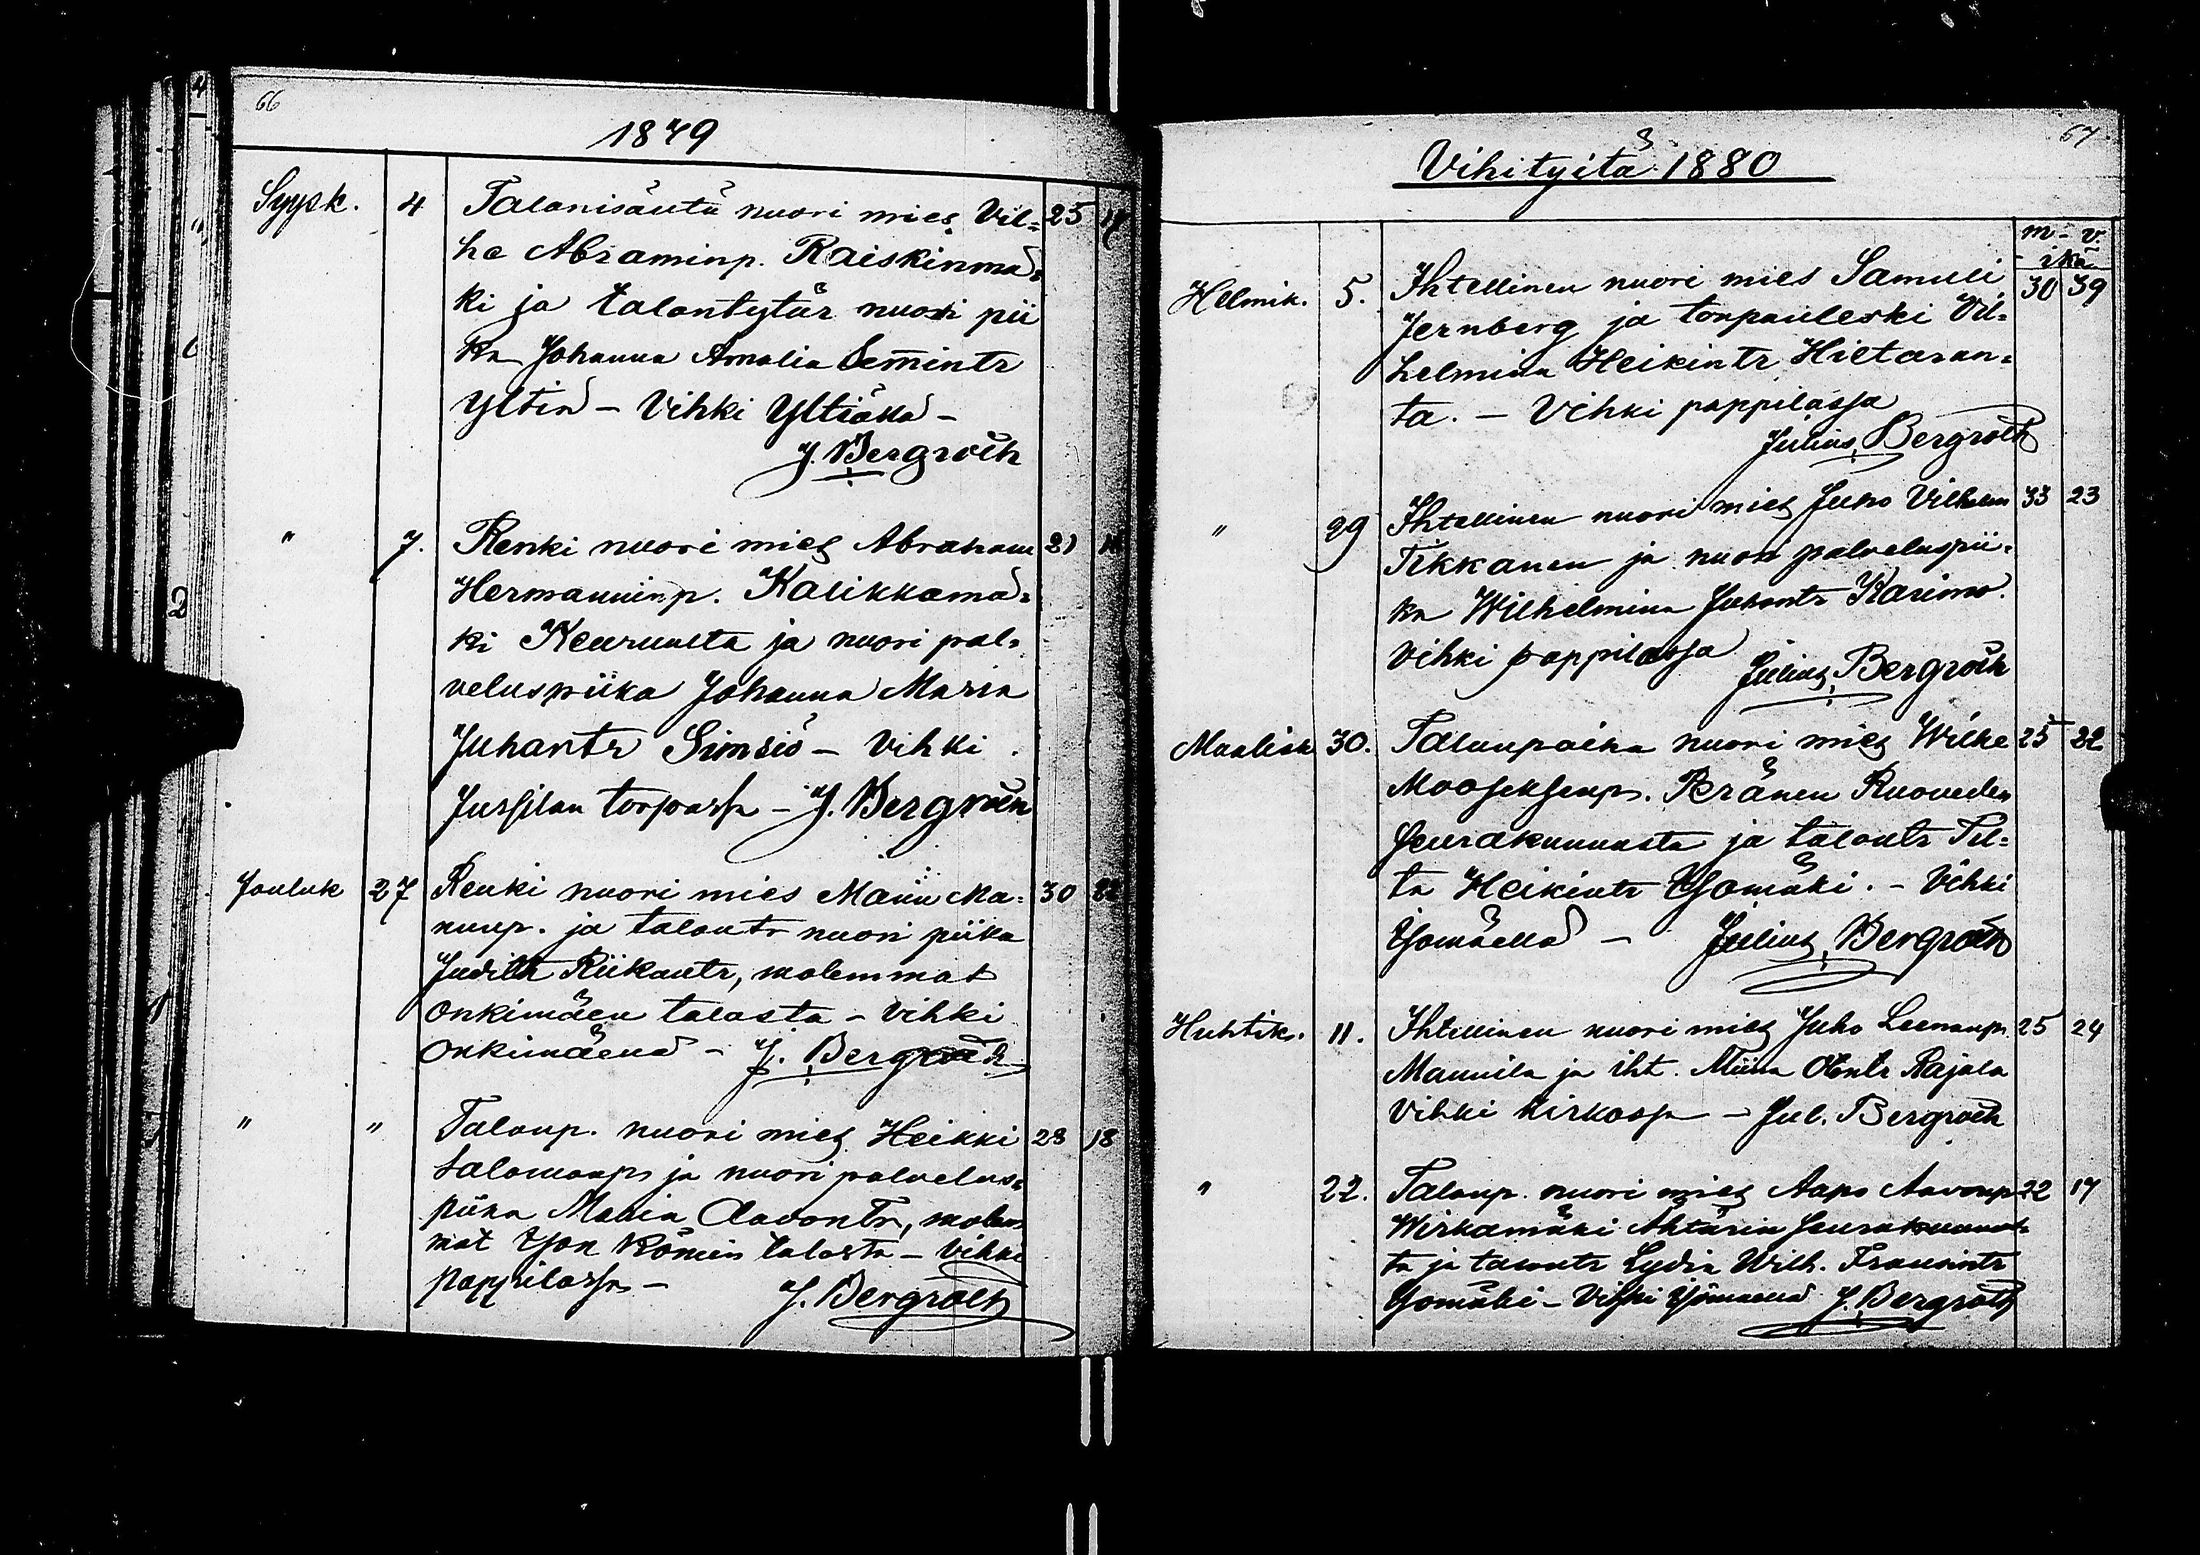 66
1879
Syysk. 4 Talonisäntä nuori mies Vil= 25
he Abraminp. Raiskinmä=
ki ja talontytär nuori pii
ka Johanna Amalia
Yltiä - Vihki Yltiässä -
J. Bergroth
" 7. Renki nuori mies Abraham 21
Hermanninp. Kalikkamä=
ki Keuruulta ja nuori pal=
veluspiika Johanna Maria
Juhantr Simsiö - Vihki
Jussilan torpassa - J. Bergroth
Jouluk 27 Renki nuori mies Manu Ma= 30 22
nunp. ja talontr nuori piika
Judith Riikantr, molemmat
Onkimäen talosta - Vihki
Onkimäellä - J. Bergroth
" " Talonp. nuori mies Heikki 23 18
Salomonp. ja nuori palvelus=
piika Maria Aadontr, molem
mat talosta - Vihki
pappilassa - J. Bergroth
67
Vihityitä 1880
m - v.
ikä
Helmik. 5. Ihtellinen nuori mies Samuli 30 39
Jernberg ja torpanleski Vil=
helmina Heikintr Hietaran=
ta. - Vihki pappilassa
Julius Bergroth
" 29 Ihtellinen nuori mies Juho Vilhelm 33 23
Tikkanen ja nuori palveluspii=
ka Wilhelmina Juhontr Karimo.
Vihki pappilassa Julius Bergroth
Maalisk 30. Talonpoika nuori mies Wilhe 25 22
Mooseksenp. Peränen Ruoveden
seurakunnasta ja talontr Til=
ta Heikintr Yjomäki. - Vihki
Yjomäellä - Julius Bergroth
Huhtik. 11. Ihtellinen nuori mies Juho Leenanp. 25 24
Mannila ja iht. Miina Ottontr Rajala
Vihki kirkossa - Jul. Bergroth
" 22. Talonp. nuori mies Aapo Aavonp 22 17
Wirkamäki Ähtärin seurakunnas=
ta ja talontr Lydia Wilh. Fransintr
Yjomäki - Vihki Yjömäellä J. Bergroth